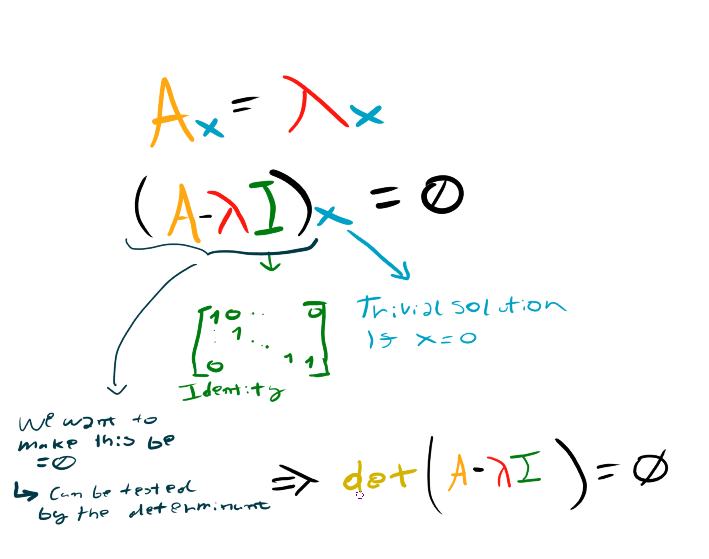 Ax = λx
(A-λI)x = 0
[1 0 .. 0
: 1 ..
0 1 1]
Identity
Trivial solution
is x=0
We want to
make this be
=0
↳ Can be tested
by the determinant
=> det(A-λI) = 0